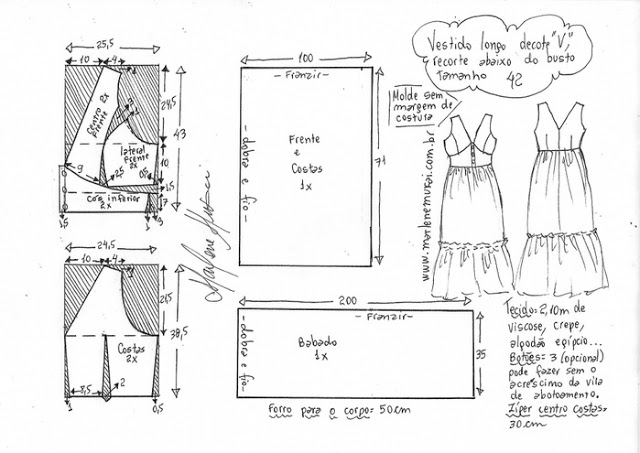 Vestido longo decote "V",
recorte abaixo do busto
Tamanho 42
Molde sem
margem de
costura
www.marlenemukai.com.br
25,5
10
4
1
3
24,5
43
10
1,5
7
Centro 2x
frente
lateral
frente
2x
9
2,5
0,5
cós inferior
2x
1,5
1
3
24,5
10
4
1
21,5
38,5
Costas
2x
8,5
2
1
0,5
100
- Franzir -
- dobra e fio -
Frente
e
Costas
1x
71
200
- Franzir -
- dobra e fio -
Babado
1x
35
Forro para o corpo= 50cm
Tecido: 2,10m de
viscose, crepe,
algodão egípcio...
Botões= 3 (opcional)
pode fazer sem o
acréscimo da vila
de abotoamento.
Zíper centro costas=
30cm
Marlene Mukai